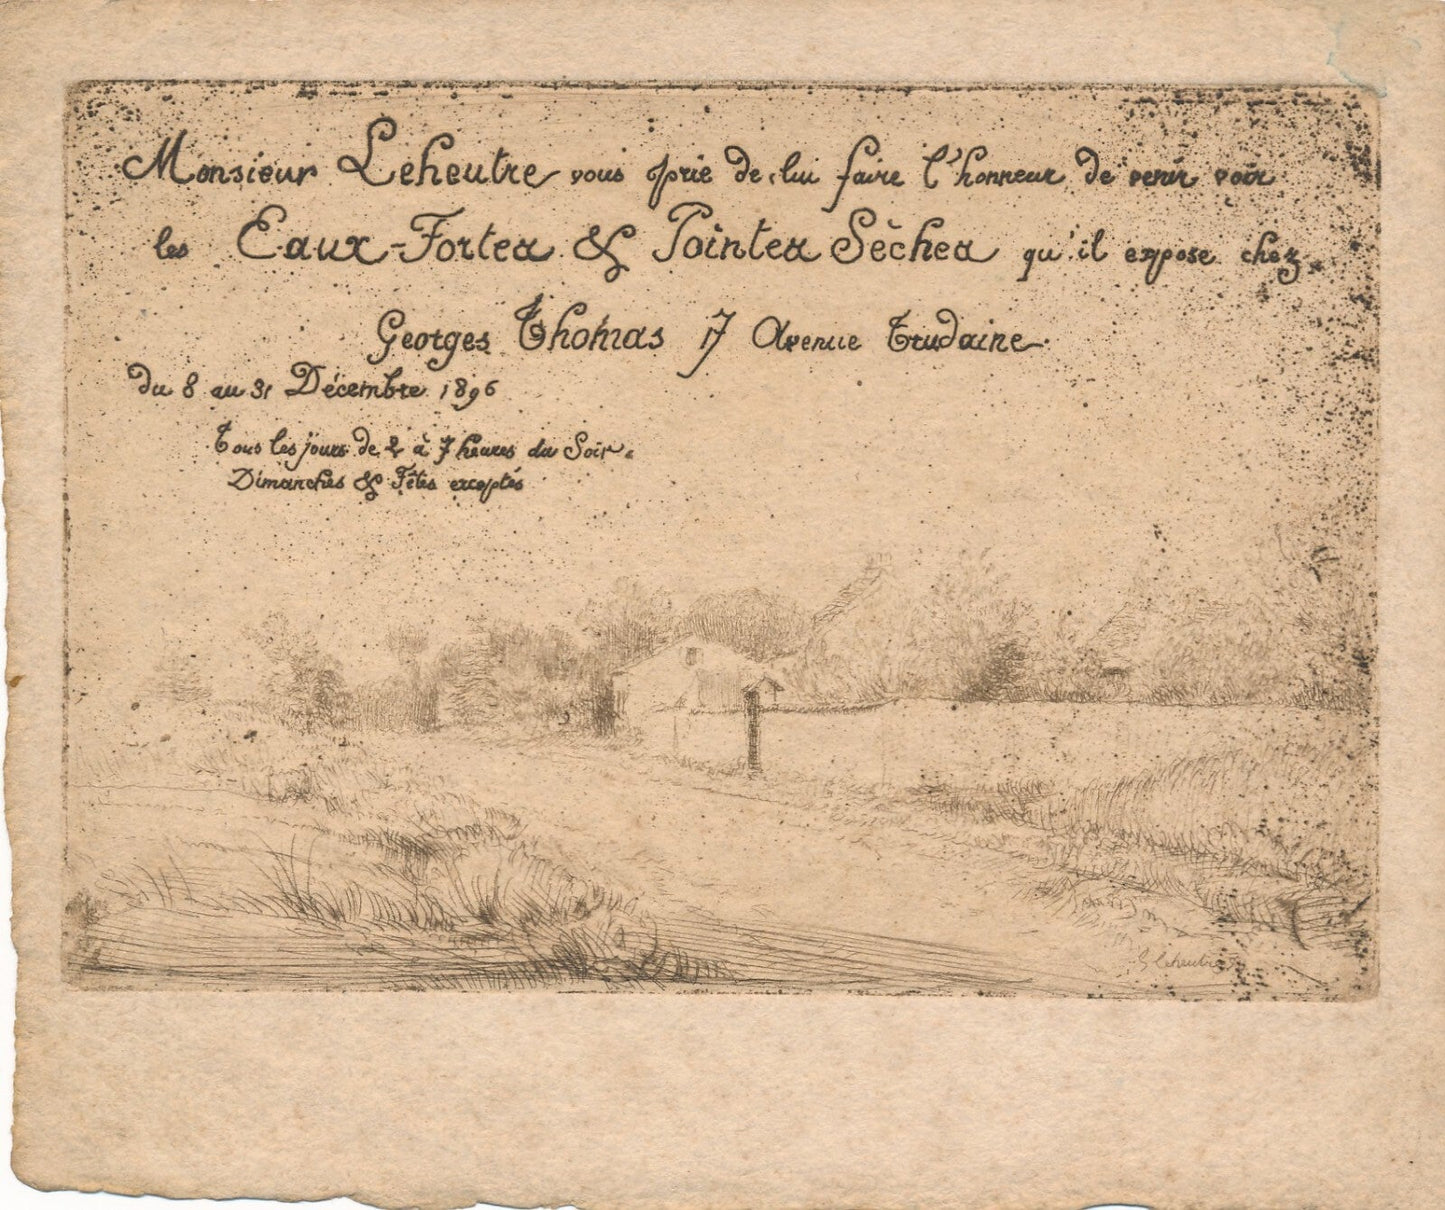 Monsieur Leheutre vous prie de lui faire l'honneur de venir voir
les Eaux-Fortes & Pointes Sèches qu'il expose chez
Georges Thomas 17 Avenue Trudaine.
du 8 au 31 Décembre 1896
Tous les jours de 2 à 7 heures du Soir.
Dimanches & Fêtes exceptés
G Leheutre